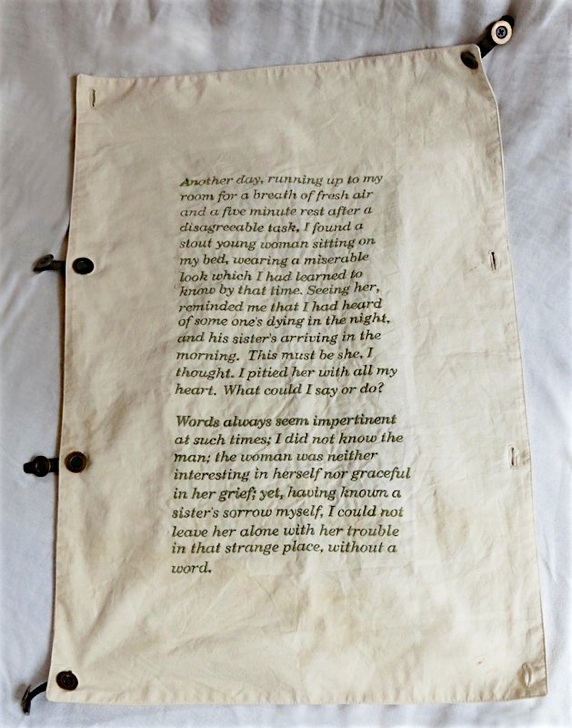 Another day, running up to my
room for a breath of fresh air
and a five minute rest after a
disagreeable task, I found a
stout young woman sitting on
my bed, wearing a miserable
look which I had learned to
know by that time. Seeing her,
reminded me that I had heard
of some one's dying in the night,
and his sister's arriving in the
morning. This must be she, I
thought. I pitied her with all my
heart. What could I say or do?
Words always seem impertinent
at such times; I did not know the
man; the woman was neither
interesting in herself nor graceful
in her grief; yet, having known a
sister's sorrow myself, I could not
leave her alone with her trouble
in that strange place, without a
word.